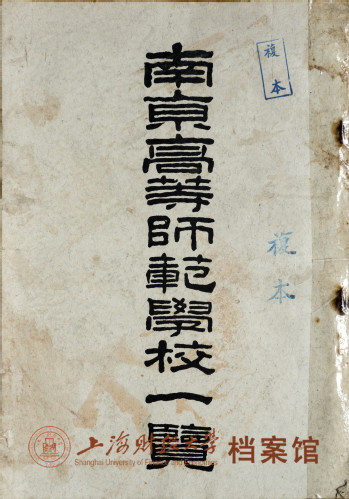 複本
複本
南京高等師範學校一覽
上海财经大学
Shanghai University of Finance and Economics
档案馆